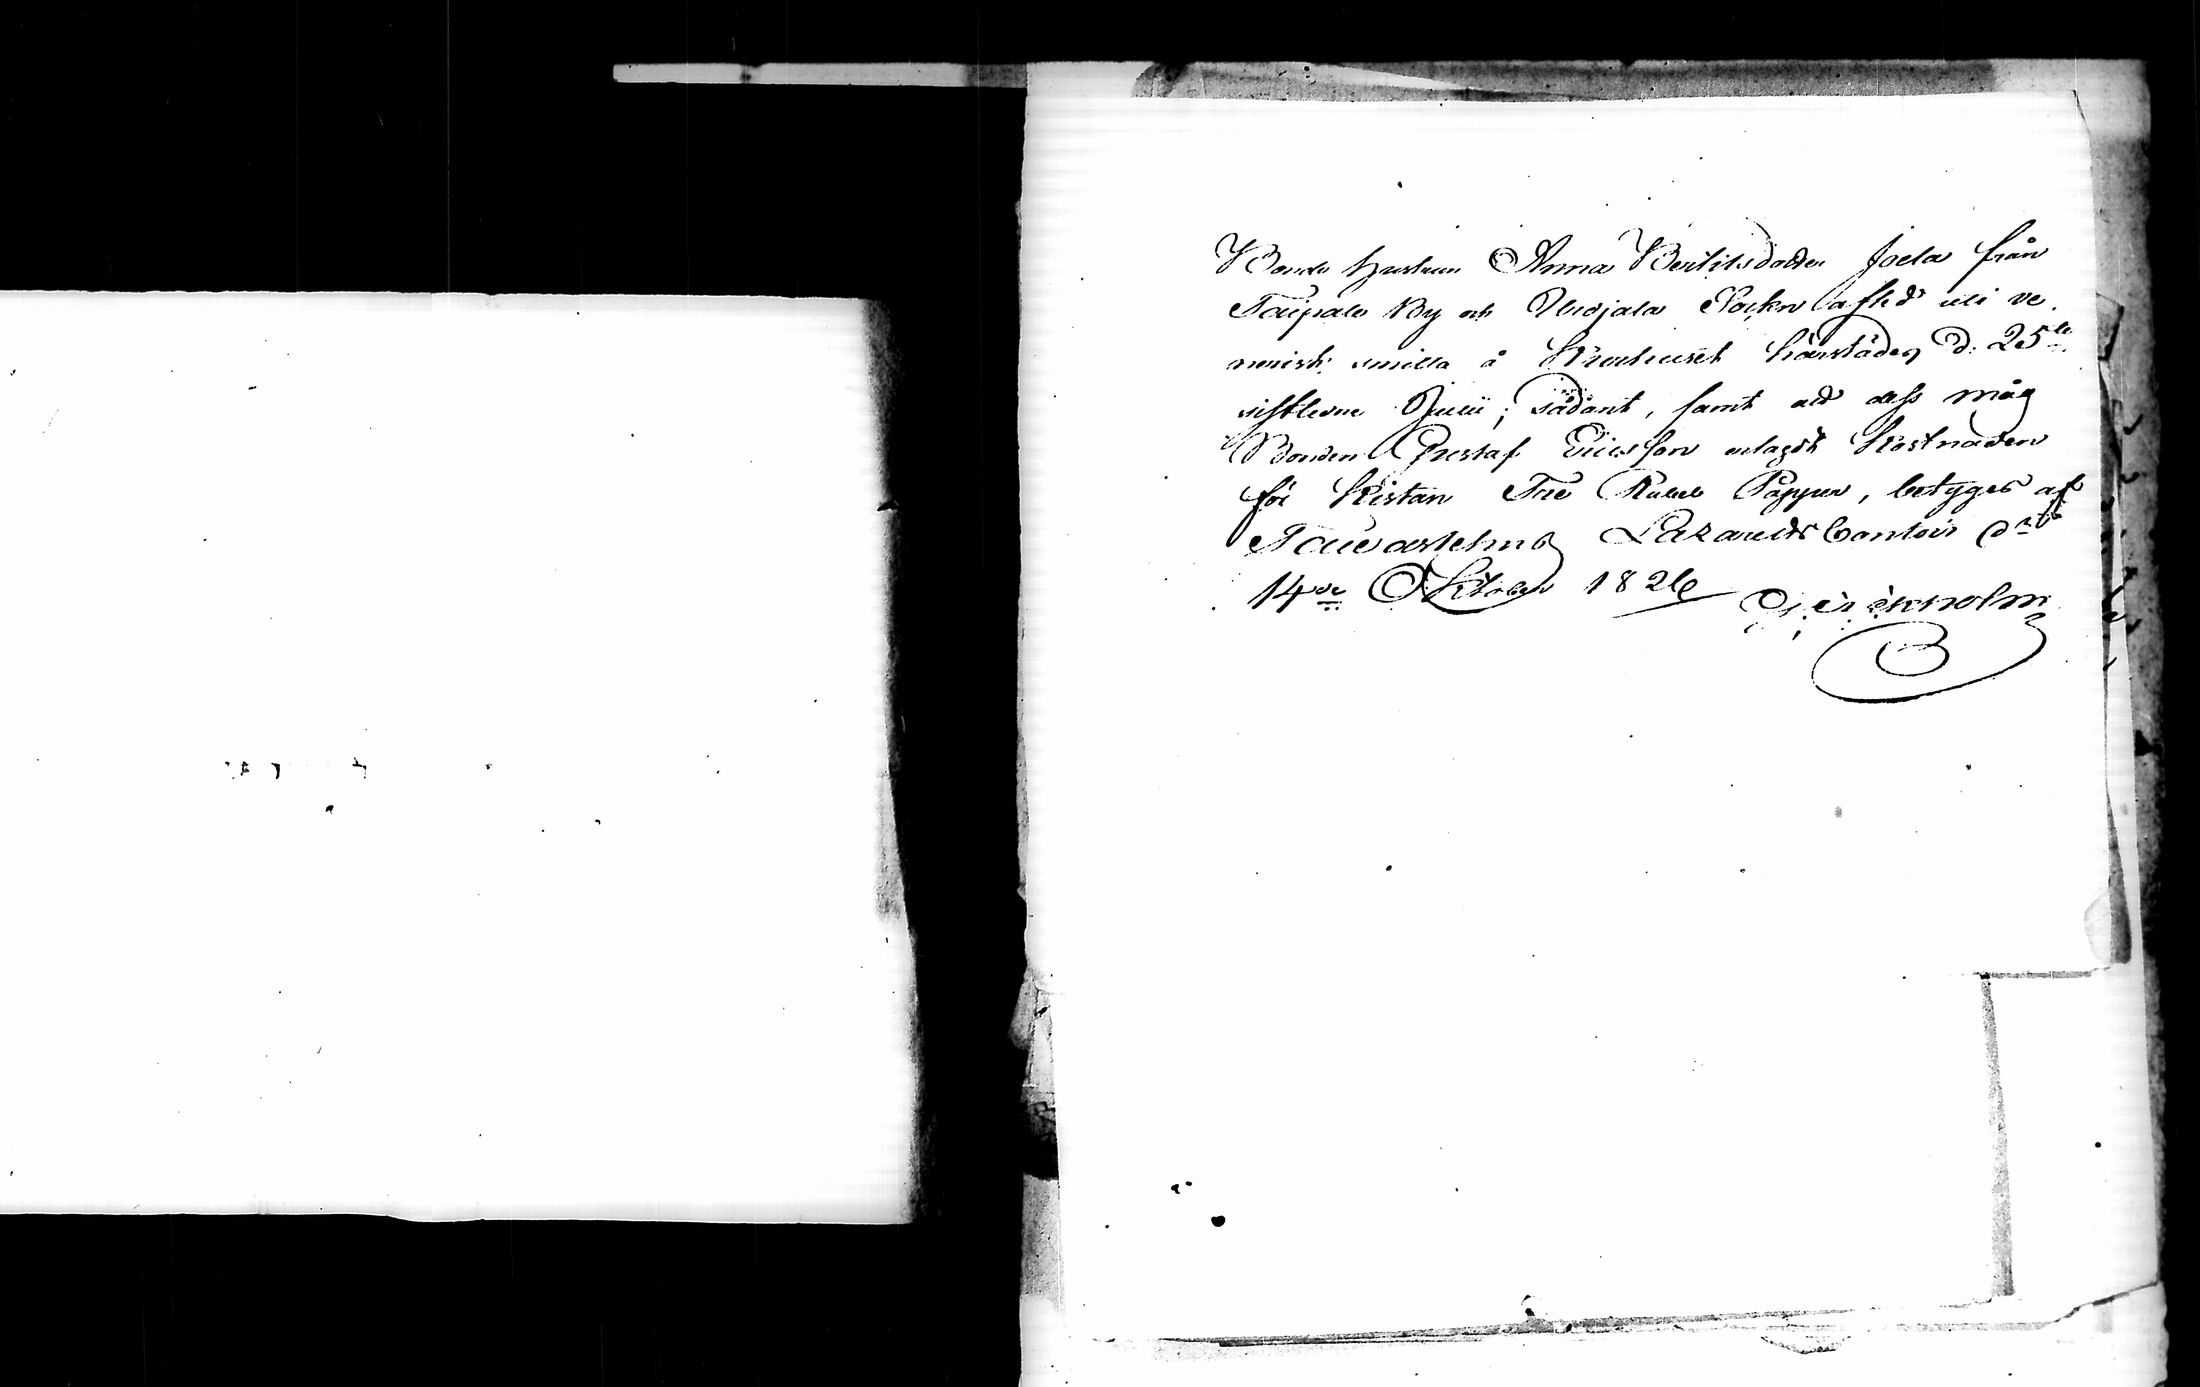 Bonde hustrun Anna Bertilsdotter Joela från
Taipale By och Urdjala Sockn afled uti ve-
nerisk smitta å Kurhuset härstädes d: 25te
sistledne Junii; sådant, samt att dess måg
Bonden Gustaf Ericsson erlagdt Kostnaden
för Kistan Tre Rubel Papper, betyges af
Tavastehus Lazaretts Contoir d.
14de October 1826